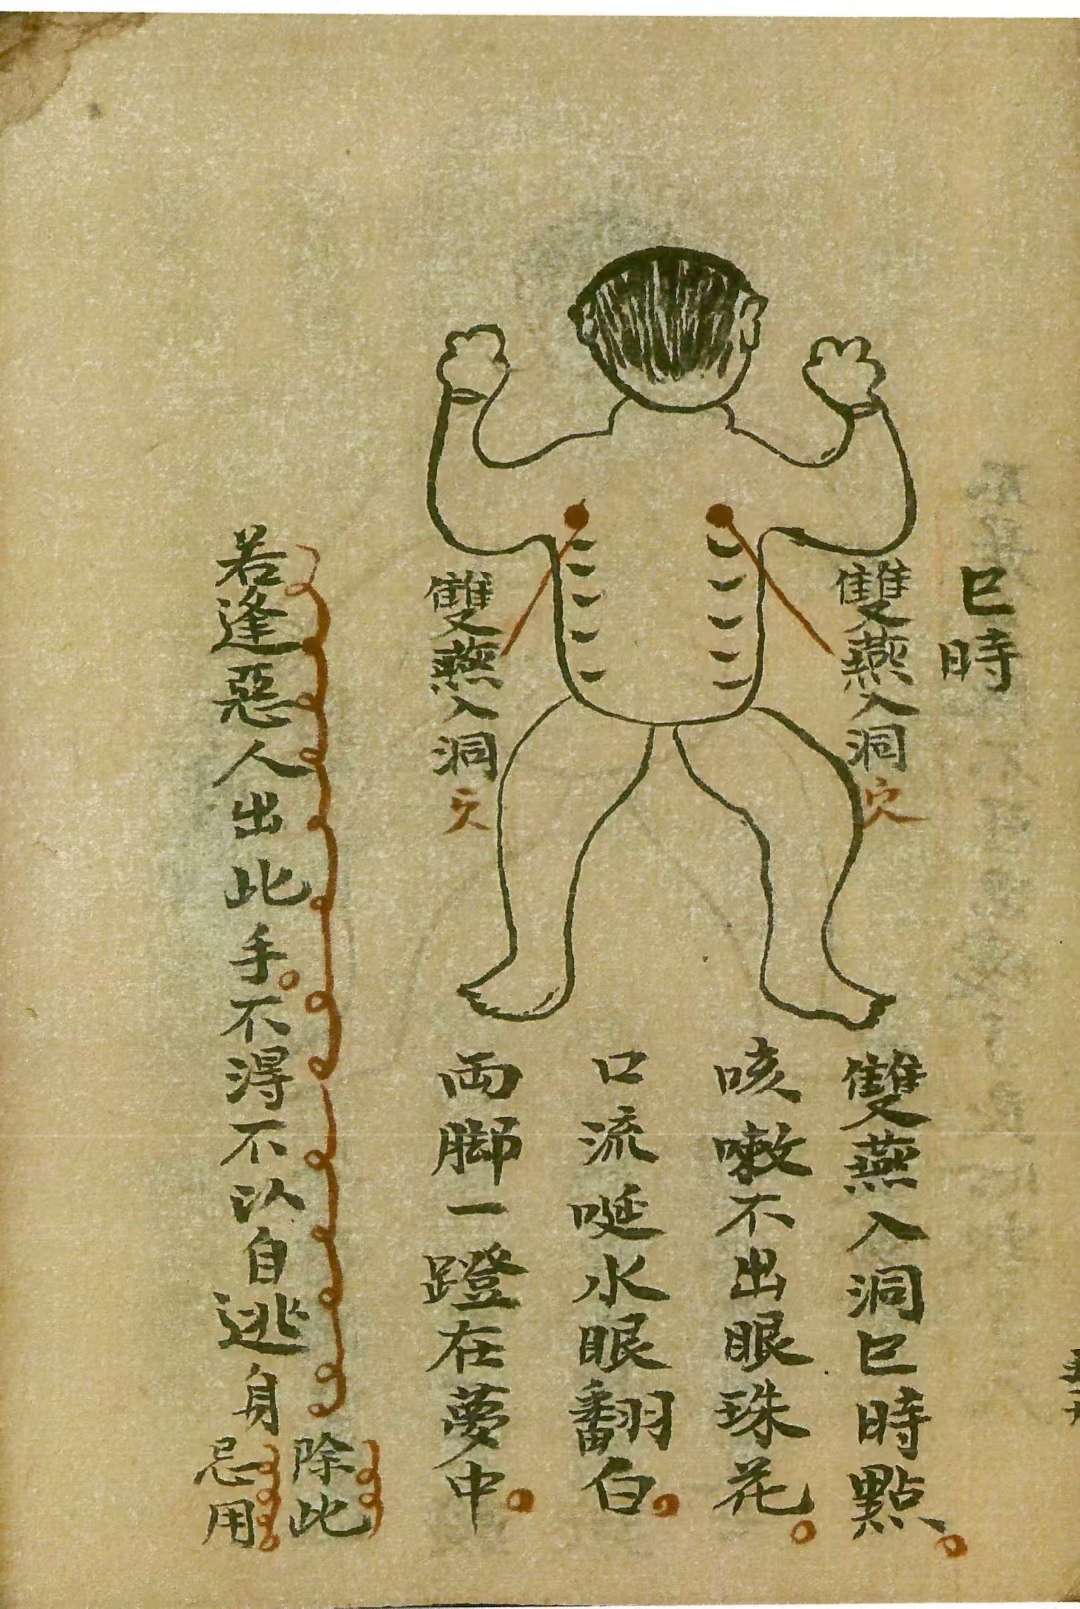 巳時
雙燕入洞穴
雙燕入洞穴
雙燕入洞巳時點。
咳嗽不出眼珠花。
口流唌水眼翻白。
両脚一蹬在夢中。
若逢惡人出此手。不得不以自逃身
除此
忌用